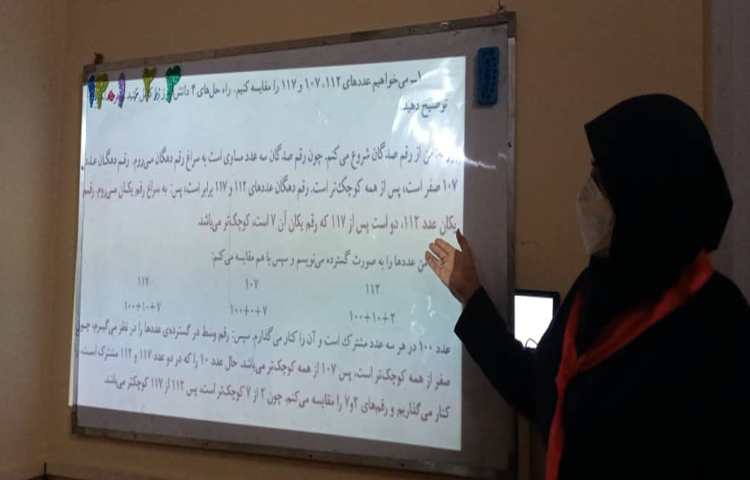 ۱ـ می‌خواهیم عددهای ۱۱۲، ۱۰۷ و ۱۱۷ را مقایسه کنیم. راه حل‌های ۴ دانش
توضیح دهید.
از رقم صدگان شروع می کنم. چون رقم صدگان سه عدد مساوی است به سراغ رقم دهگان می‌روم. رقم دهگان عدد
۱۰۷ صفر است، پس از همه کوچک‌تر است. رقم دهگان عددهای ۱۱۲ و ۱۱۷ برابر است، پس: به سراغ رقم یکان می‌روم. رقم
یکان عدد ۱۱۲، دو است پس از ۱۱۷ که رقم یکان آن ۷ است، کوچک‌تر می‌باشد.
عددها را به صورت گسترده می‌نویسم و سپس با هم مقایسه می‌کنم:
۱۱۲ ۱۰۷ ۱۱۲
۱۰۰+۱۰+۲ ۱۰۰+۰+۷ ۱۰۰+۱۰+۷
عدد ۱۰۰ در هر سه عدد مشترک است و آن را کنار می گذارم. سپس: رقم وسط در گسترده‌ی عددها را در نظر می‌گیرم، چون
صفر از همه کوچک‌تر است، پس ۱۰۷ از همه کوچک‌تر می‌باشد. حال عدد ۱۰ را که در دو عدد ۱۱۷ و ۱۱۲ مشترک است،
کنار می گذاریم و رقم‌های ۲و۷ را مقایسه می‌کنم. چون ۲ از ۷ کوچک‌تر است، پس ۱۱۲ از ۱۱۷ کوچکتر می‌باشد.